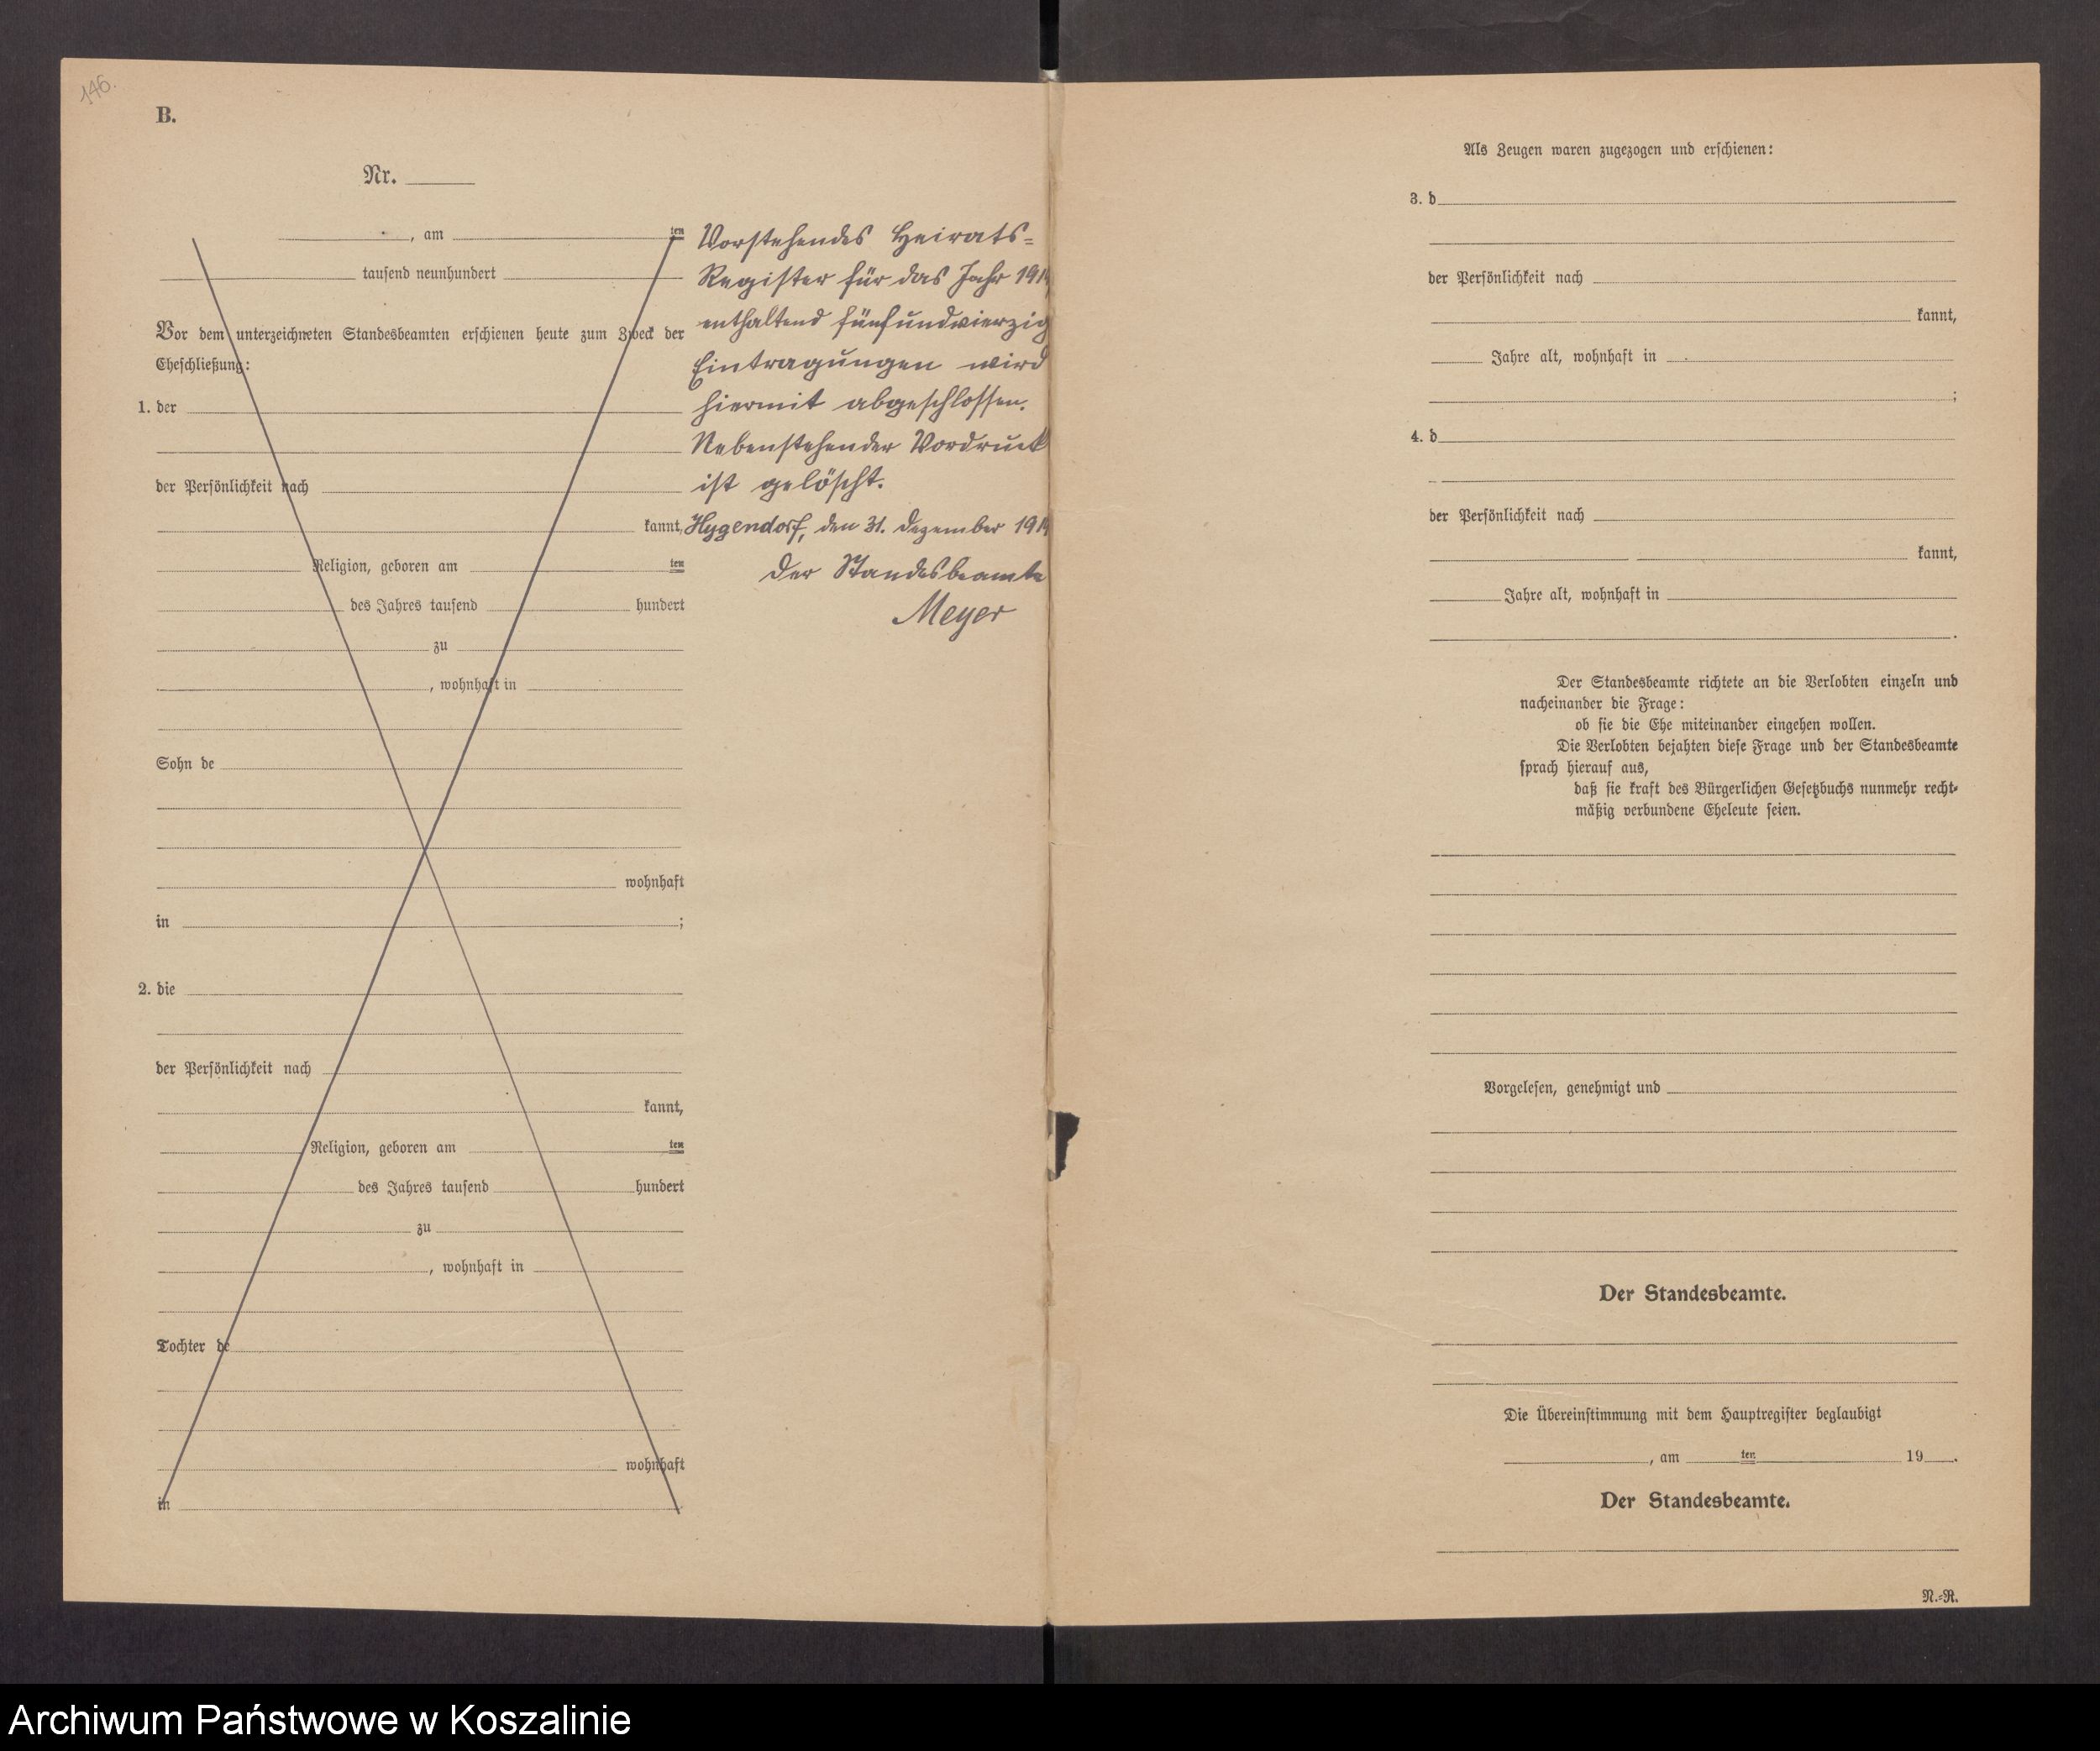 146.
B.
Nr.
, am ten
tausend neunhundert
Vor dem unterzeichneten Standesbeamten erschienen heute zum Zweck der
Eheschließung:
1. der
der Persönlichkeit nach
kannt,
Religion, geboren am ten
des Jahres tausend hundert
zu
, wohnhaft in
Sohn de
wohnhaft
in ;
2. die
der Persönlichkeit nach
kannt,
Religion, geboren am ten
des Jahres tausend hundert
zu
, wohnhaft in
Tochter de
wohnhaft
in
Vorstehendes Heirats-
Register für das Jahr
enthaltend fünfundvierzig
Eintragungen wird
hiermit abgeschlossen.
Nebenstehender Vordruck
ist gelöscht.
Hygendorf, den 31. Dezember
Der Standesbeamte
Meyer
Als Zeugen waren zugezogen und erschienen:
3. d
der Persönlichkeit nach
kannt,
Jahre alt, wohnhaft in
;
4. d
der Persönlichkeit nach
kannt,
Jahre alt, wohnhaft in
.
Der Standesbeamte richtete an die Verlobten einzeln und
nacheinander die Frage:
ob sie die Ehe miteinander eingehen wollen.
Die Verlobten bejahten diese Frage und der Standesbeamte
sprach hierauf aus,
daß sie kraft des Bürgerlichen Gesetzbuchs nunmehr recht-
mäßig verbundene Eheleute seien.
Vorgelesen, genehmigt und
Der Standesbeamte.
Die Übereinstimmung mit dem Hauptregister beglaubigt
, am ten 19 .
Der Standesbeamte.
N.-R.
Archiwum Państwowe w Koszalinie